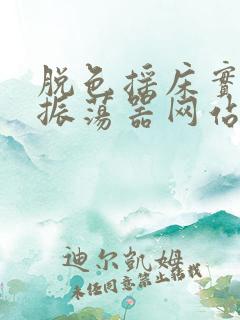 脱色摇床实
振荡器网佔
迪尔凯姆
未经同意禁止转载